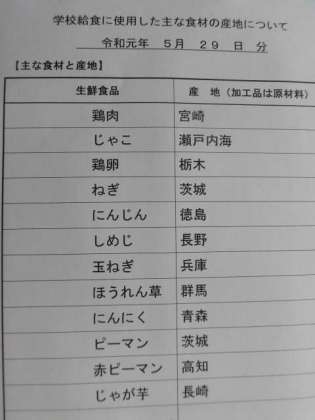 学校給食に使用した主な食材の産地について
令和元年 5月 29 日 分
【主な食材と産地】
生鮮食品 産 地（加工品は原材料）
鶏肉 宮崎
じゃこ 瀬戸内海
鶏卵 栃木
ねぎ 茨城
にんじん 徳島
しめじ 長野
玉ねぎ 兵庫
ほうれん草 群馬
にんにく 青森
ピーマン 茨城
赤ピーマン 高知
じゃが芋 長崎